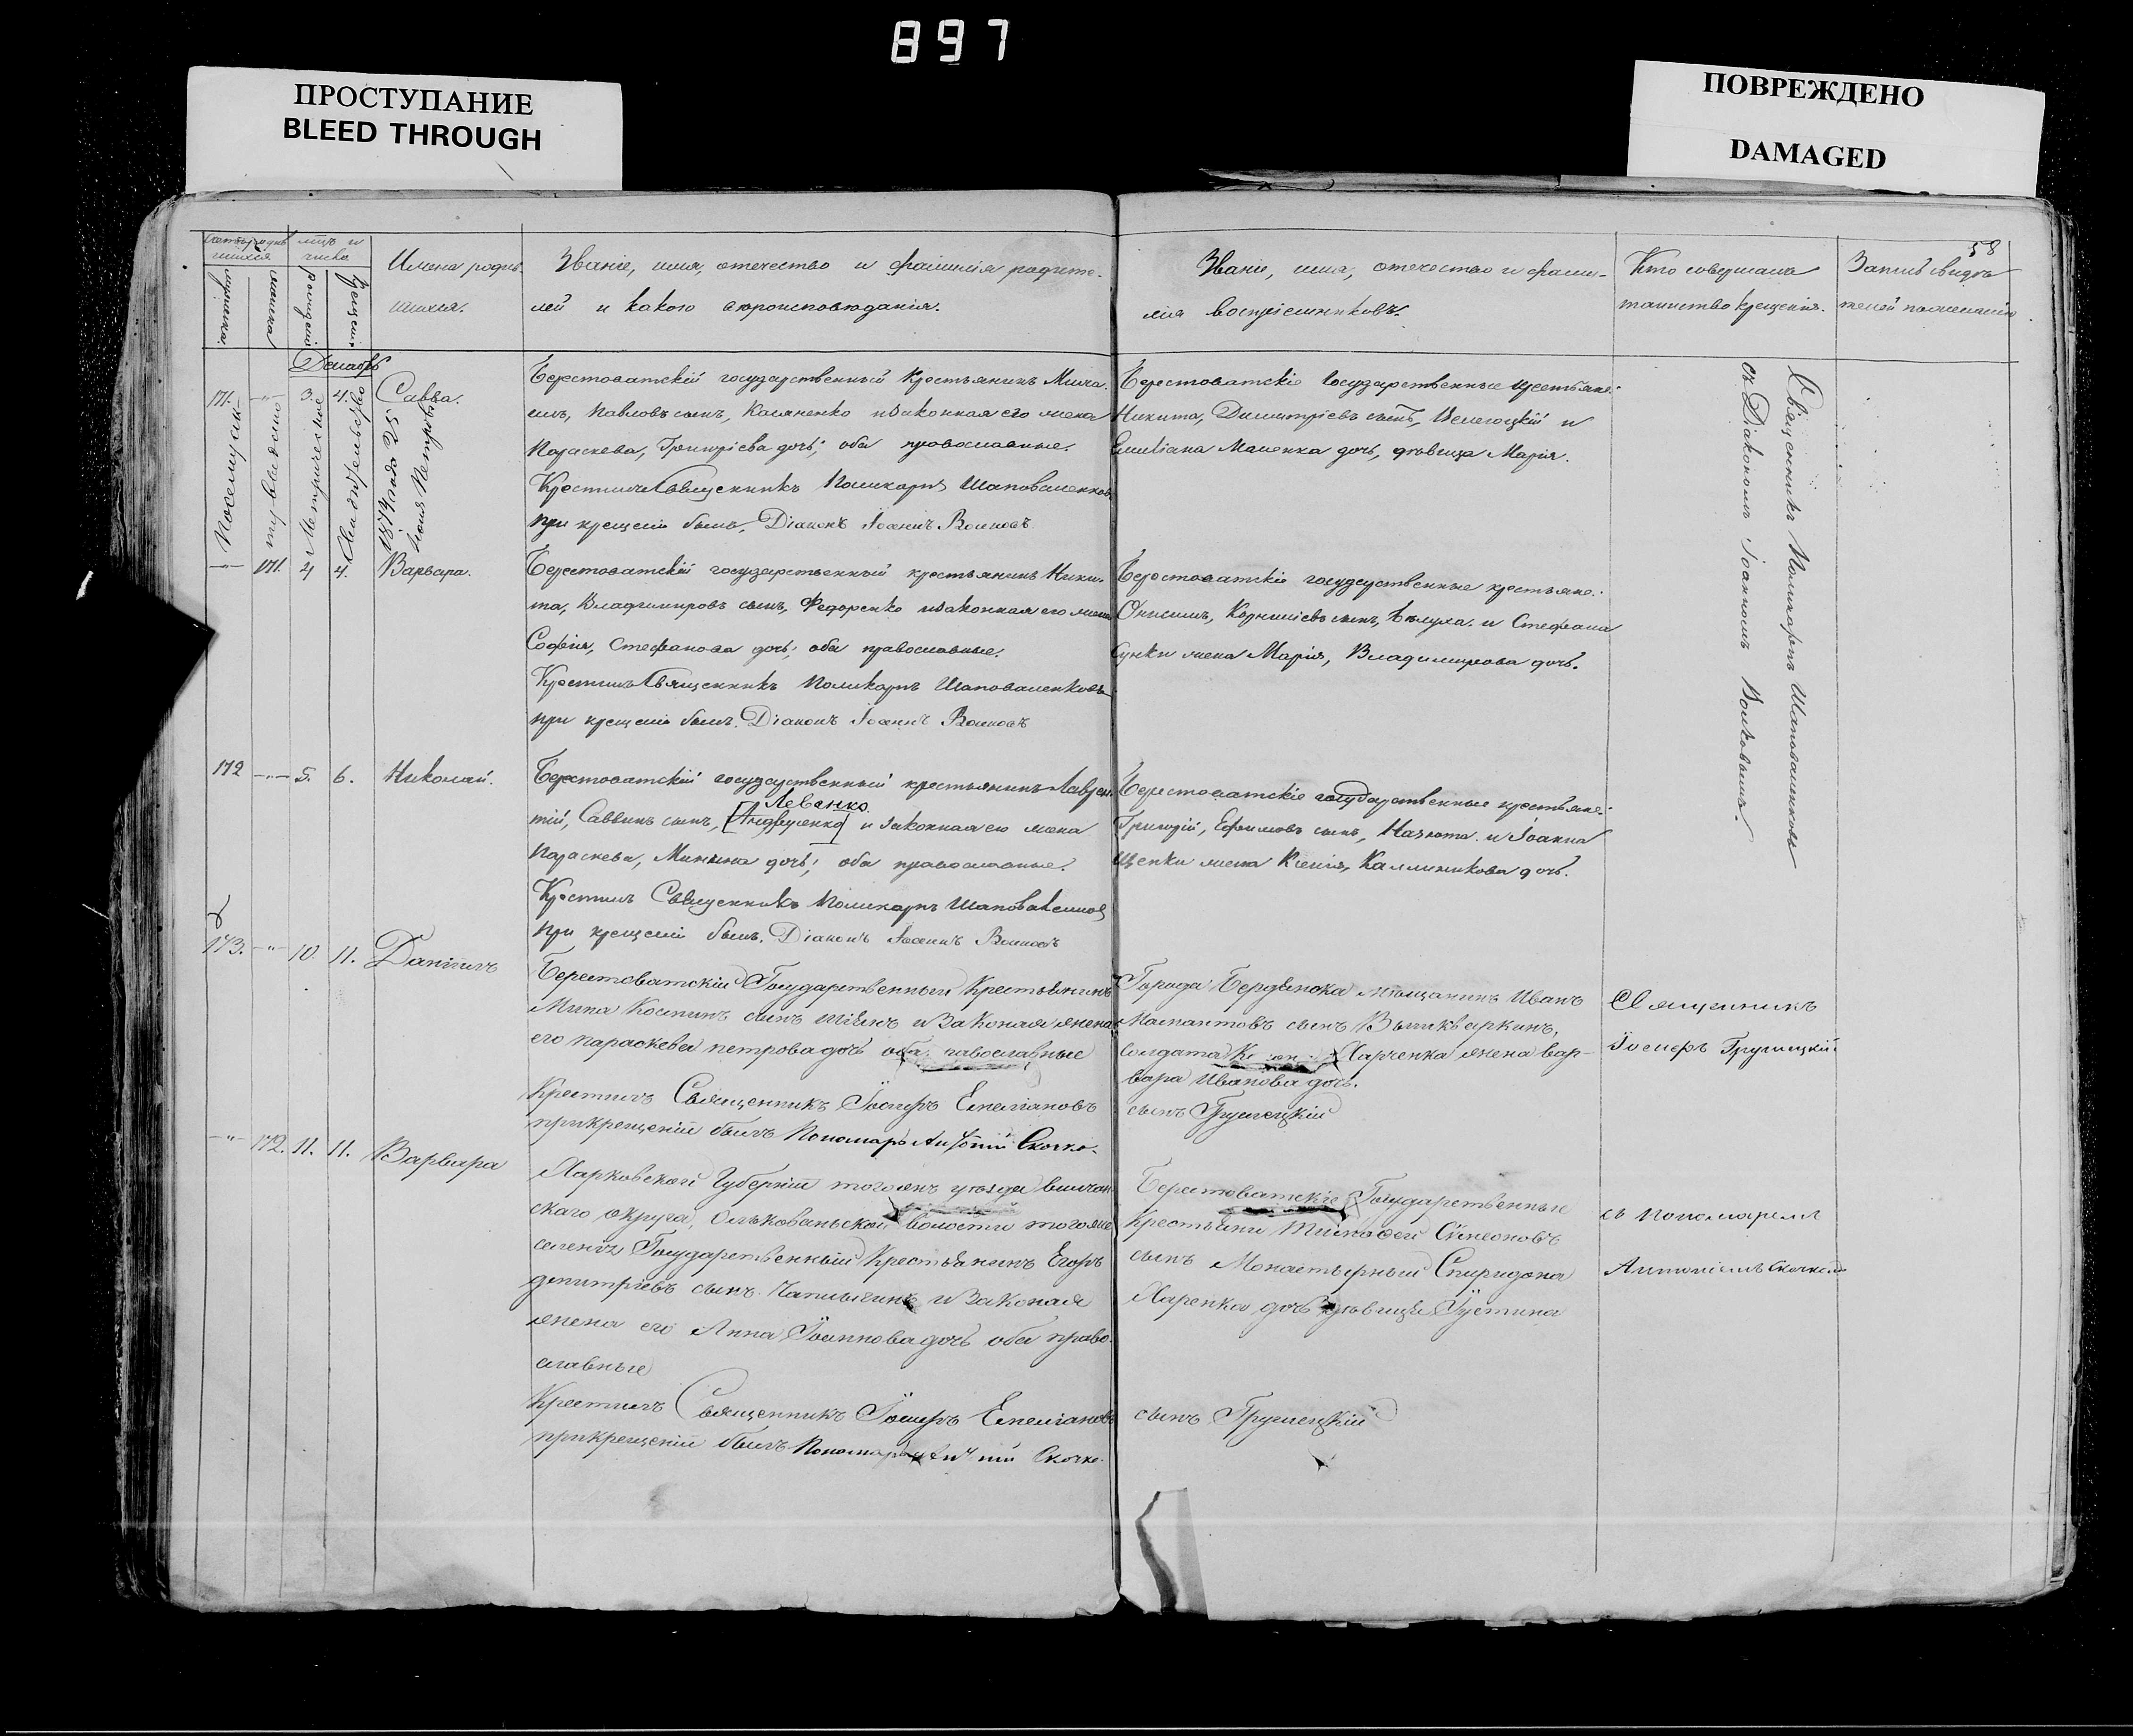 897
ПРОСТУПАНИЕ
BLEED THROUGH
ПОВРЕЖДЕНО
DAMAGED
58
Имена родив-
шихся.
Званіе, имя, отечество и фамилія родите-
лей и какого вѣроисповѣданія.
Званіе, имя, отечество и фами-
лія воспріемниковъ.
Кто совершалъ
таинство крещенія.
Декабрь
171. 3. 4. Савва.
Берестоватскій государственный крестьянинъ Миха-
илъ, Павловъ сынъ, Касяненко и законная его жена
Параскева, Григоріева дочь; оба православные.
Крестилъ Священникъ Поликарпъ Шаповаленковъ
при крещеніи былъ, Діаконъ Іоаннъ Волковъ
Берестоватскіе государственные крестьяне:
Никита, Димитріевъ сынъ, и
Емиліана дочь, дѣвица Марія.
По сему ак-
ту выдано
Метрическое
Свидѣтельство
1874 года 25
171. 4 4. Варвара.
Берестоватскій государственный крестьянинъ Ники-
та, Владимировъ сынъ, Федоренко и законная его жена
Софія, Стефанова дочь; оба православные.
Крестилъ Священникъ Поликарпъ Шаповаленковъ
при крещеніи былъ. Діаконъ Іоаннъ Волковъ
Берестоватскіе государственные крестьяне:
Онисимъ, Корниліевъ сынъ, и Стефана
жена Марія, Владимирова дочь.
Священникъ Поликарпъ Шаповаленковъ
съ Діакономъ Іоанномъ Волковымъ.
172 5. 6. Николай.
Берестоватскій государственный крестьянинъ Лаврен-
Левенко
тій, Саввинъ сынъ, [Андрущенко] и законная его жена
Параскева, Минина дочь; оба православные.
Крестилъ Священникъ Поликарпъ Шаповаленковъ
при крещеніи былъ. Діаконъ Іоаннъ Волковъ
Берестоватскіе государственные крестьяне:
Григорій, Ефимовъ сынъ, и Іоанна
жена Ксенія, Каллиникова дочь.
173. 10. 11. Даніилъ
Берестоватскій Государственный Крестьянинъ
Мина сынъ и законая жена
его параскева петрова дочь оба православные
Крестилъ Священникъ Іосифъ Емеліановъ
при крещеніи былъ Пономарь Антоній Скочко.
Города Бердянска мѣщанинъ Иванъ
сынъ
солдата Харченка жена вар-
вара Иванова дочь.
сынъ Грушецкій
Священикъ
Іосифъ Грушецкій
172. 11. 11. Варвара
Харковской Губерніи тогожъ уѣзда
скаго округа, волости тогоже
селенія Государственный Крестьянинъ Егоръ
димитріевъ сынъ и законая
жена его Анна Іоаннова дочь оба право-
славные
Крестилъ Священникъ Іосифъ Емеліановъ
при крещеніи былъ Пономарь Антоній Скочко
Берестоватскіе Государственные
Крестьяни Тимофей Симеоновъ
сынъ Монастырный Спиридона
дочь дѣвица Іустина
сынъ Грушецкій
съ пономаремъ
Антоніемъ